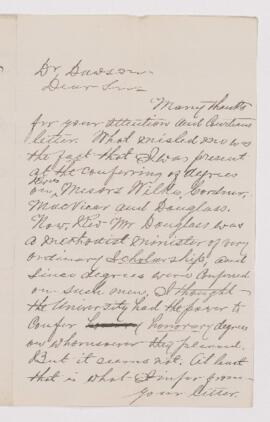 Dr Dawson
Dear Sir
Many thanks
for your attention and Courteous
letter. What misled me was
the fact that I was present
at the conferring of degrees
Revs
on, Messrs Wilkes, Cordner,
MacVicar and Douglass.
Now, Rev Mr Douglass was
a methodist minister of very
ordinary Scholarship, and
since degrees were conferred
on such men, I thought
the University had the power to
confer honorary degrees
on whomsoever they pleased.
But it seems not. At least
that is what I infer from
your letter.